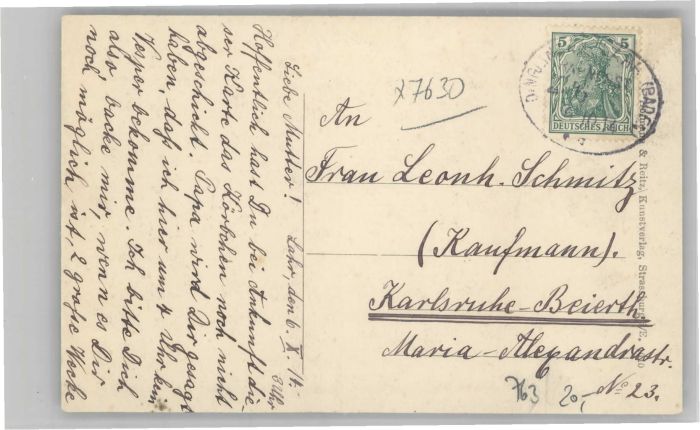 Liebe Mutter! Lahr, den 6. X. 14.
3 Uhr
Hoffentlich hast Du bei Ankunft die-
ser Karte das Körbchen noch nicht
abgeschickt. Papa wird Dir gesagt
haben, daß ich hier um 4 Uhr kein
Vesper bekomme. Ich bitte Dich
also backe mir, wenn es Dir
noch möglich ist, 2 große Wecke
27630
An
Frau Leonh. Schmitz
(Kaufmann).
Karlsruhe-Beierth.
Maria-Alexandrastr.
No 23.
763 20,-
5 5
DEUTSCHES REICH
(BADEN)
& Reitz, Kunstverlag, Strassburg i/E.